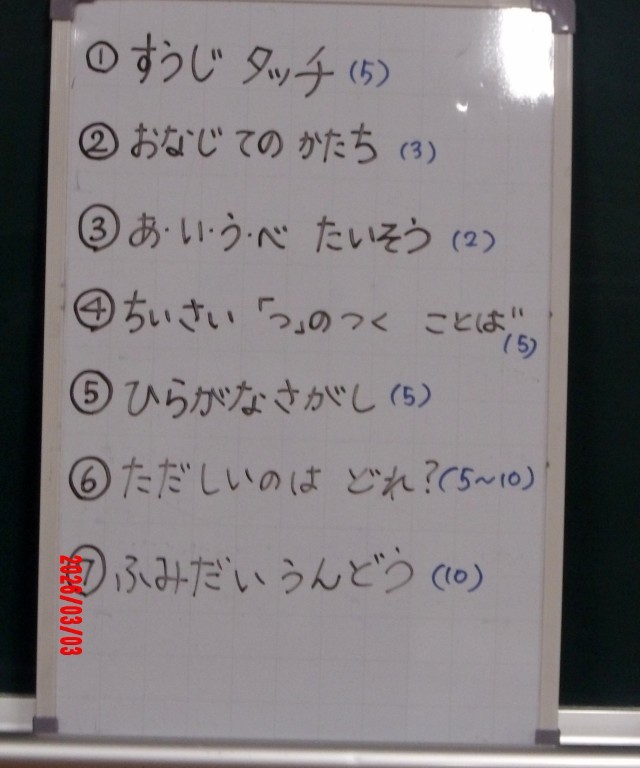 ① すうじ タッチ (5)
② おなじ ての かたち (3)
③ あ・い・う・べ たいそう (2)
④ ちいさい 「っ」の つく ことば (5)
⑤ ひらがな さがし (5)
⑥ ただしいのは どれ? (5~10)
⑦ ふみだい うんどう (10)
2026/03/03